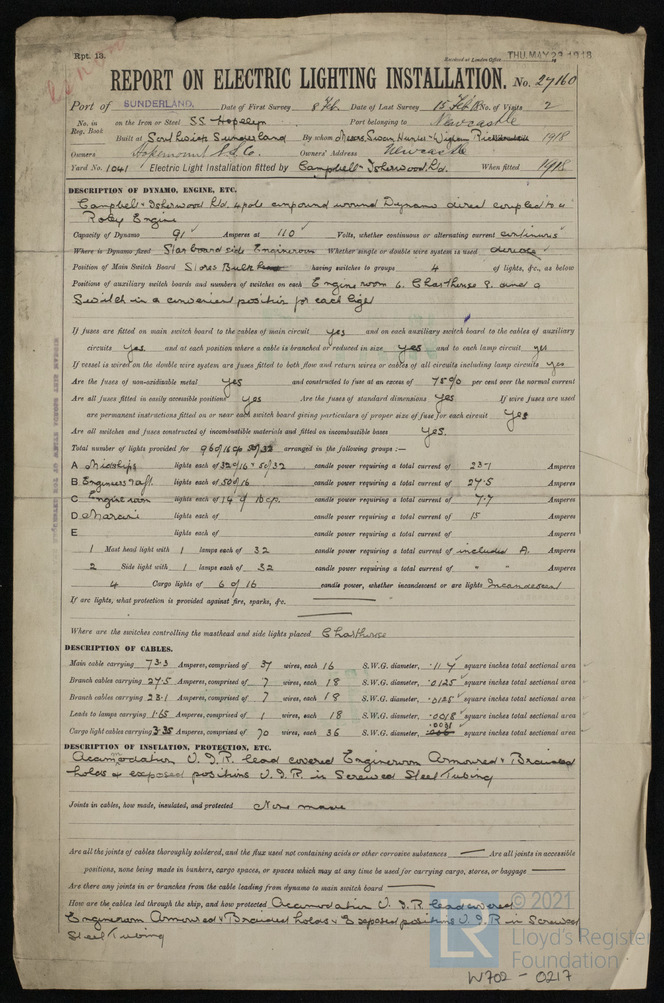 Rpt. 13.
Received at London Office THU. MAY 23 1918
REPORT ON ELECTRIC LIGHTING INSTALLATION. No. 27160
Port of SUNDERLAND. Date of First Survey 8 Feb. Date of Last Survey 15 Feb 18 No. of Visits 2
No. in Reg. Book on the Iron or Steel SS Hopelyn Port belonging to Newcastle
Built at Southwick Sunderland By whom Messrs Swan Hunter & Wigham Richardson 1918
Owners Hopemount S.S. Co. Owners' Address Newcastle
Yard No. 1041 Electric Light Installation fitted by Campbell & Isherwood Ltd. When fitted 1918
DESCRIPTION OF DYNAMO, ENGINE, ETC.
Campbell & Isherwood Ltd. 4 pole compound wound Dynamo direct coupled to a
Robey Engine
Capacity of Dynamo 91 Amperes at 110 Volts, whether continuous or alternating current continuous
Where is Dynamo fixed Starboard side Engineroom Whether single or double wire system is used double
Position of Main Switch Board Stores Bulkhead having switches to groups 4 of lights, &c., as below
Positions of auxiliary switch boards and numbers of switches on each Engine room 6. Charthouse 8. and a
Switch in a convenient position for each light
If fuses are fitted on main switch board to the cables of main circuit yes and on each auxiliary switch board to the cables of auxiliary
circuits yes. and at each position where a cable is branched or reduced in size yes and to each lamp circuit yes
If vessel is wired on the double wire system are fuses fitted to both flow and return wires or cables of all circuits including lamp circuits yes
Are the fuses of non-oxidizable metal yes and constructed to fuse at an excess of 75% per cent over the normal current
Are all fuses fitted in easily accessible positions yes Are the fuses of standard dimensions yes If wire fuses are used
are permanent instructions fitted on or near each switch board giving particulars of proper size of fuse for each circuit yes
Are all switches and fuses constructed of incombustible materials and fitted on incombustible bases yes.
Total number of lights provided for 96 of 16 cp 5 of 32 arranged in the following groups :—
A Midships lights each of 32 of 16 & 5 of 32 candle power requiring a total current of 23·1 Amperes
B Engineers & aft. lights each of 50 of 16 candle power requiring a total current of 27·5 Amperes
C Engineroom lights each of 14 of 16 cp. candle power requiring a total current of 7·7 Amperes
D Marconi lights each of candle power requiring a total current of 15 Amperes
E lights each of candle power requiring a total current of Amperes
1 Mast head light with 1 lamps each of 32 candle power requiring a total current of included A. Amperes
2 Side light with 1 lamps each of 32 candle power requiring a total current of " " Amperes
4 Cargo lights of 6 of 16 candle power, whether incandescent or arc lights Incandescent
If arc lights, what protection is provided against fire, sparks, &c. —
Where are the switches controlling the masthead and side lights placed Charthouse
DESCRIPTION OF CABLES.
Main cable carrying 73·3 Amperes, comprised of 37 wires, each 16 S.W.G. diameter, ·117 square inches total sectional area
Branch cables carrying 27·5 Amperes, comprised of 7 wires, each 18 S.W.G. diameter, ·0125 square inches total sectional area
Branch cables carrying 23·1 Amperes, comprised of 7 wires, each 18 S.W.G. diameter, ·0125 square inches total sectional area
Leads to lamps carrying 1·65 Amperes, comprised of 1 wires, each 18 S.W.G. diameter, ·0018 square inches total sectional area
Cargo light cables carrying 3·35 Amperes, comprised of 70 wires, each 36 S.W.G. diameter, ·0031 square inches total sectional area
DESCRIPTION OF INSULATION, PROTECTION, ETC.
Accomodation V.I.R. lead covered Engineroom Armoured & Braided
holds & exposed positions V.I.R. in Screwed Steel Tubing
Joints in cables, how made, insulated, and protected None made
Are all the joints of cables thoroughly soldered, and the flux used not containing acids or other corrosive substances — Are all joints in accessible
positions, none being made in bunkers, cargo spaces, or spaces which may at any time be used for carrying cargo, stores, or baggage —
Are there any joints in or branches from the cable leading from dynamo to main switch board —
How are the cables led through the ship, and how protected Accomodation V.I.R. lead covered
Engineroom Armoured & Braided holds & Exposed positions V.I.R in Screwed
Steel Tubing
LR
© 2021
Lloyd's Register
Foundation
W702 - 0217